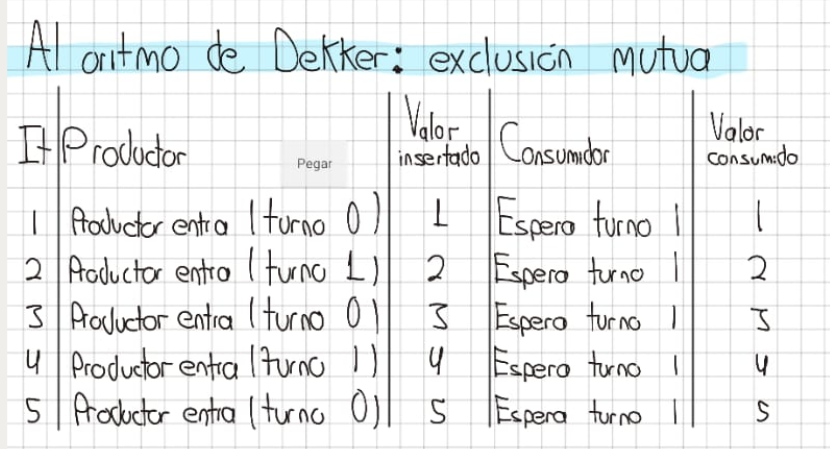 Al oritmo de Dekker: exclusión mutua
It Productor Valor insertado Consumidor Valor consumido
Pegar
1 Productor entra (turno 0) 1 Espera turno 1 1
2 Productor entra (turno 1) 2 Espera turno 1 2
3 Productor entra (turno 0) 3 Espera turno 1 3
4 Productor entra (turno 1) 4 Espera turno 1 4
5 Productor entra (turno 0) 5 Espera turno 1 5